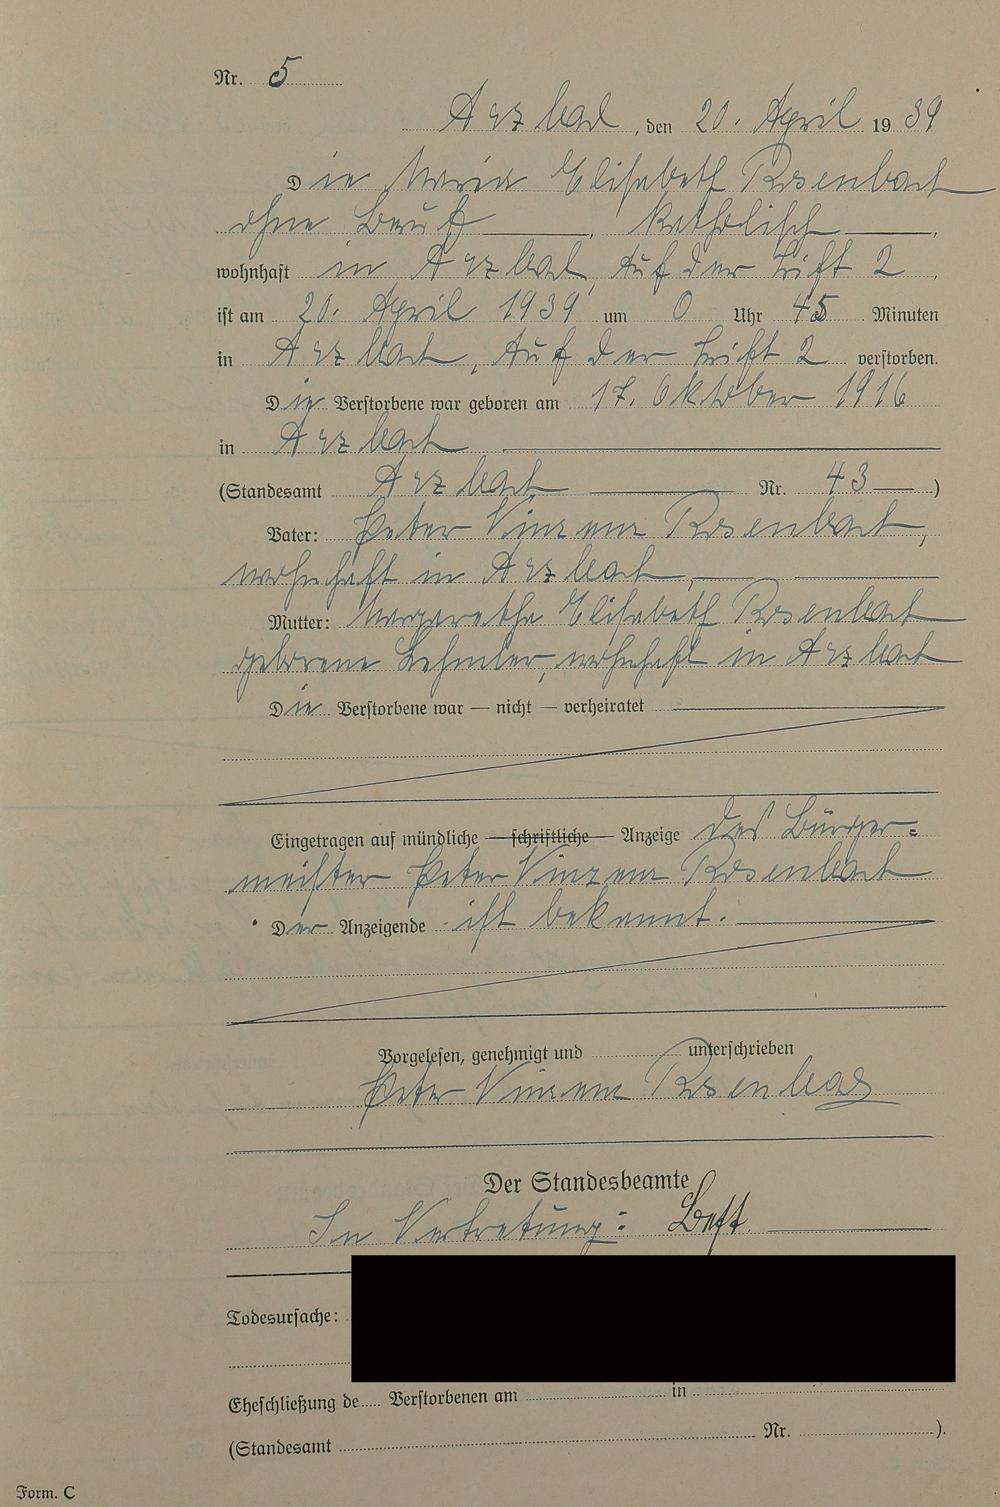 Nr. 5
Arzbach, den 20. April 1939
Die Maria Elisabeth Rosenbach
ohne Beruf, katholisch,
wohnhaft in Arzbach, Auf der Trift 2,
ist am 20. April 1939 um 0 Uhr 45 Minuten
in Arzbach, Auf der Trift 2 verstorben.
Die Verstorbene war geboren am 17. Oktober 1916
in Arzbach
(Standesamt Arzbach Nr. 43)
Vater: Peter Vinzenz Rosenbach,
wohnhaft in Arzbach,
Mutter: Margaretha Elisabeth Rosenbach
geborene Lehmler, wohnhaft in Arzbach
Die Verstorbene war — nicht — verheiratet
Eingetragen auf mündliche — schriftliche — Anzeige des Bürger=
meister Peter Vinzenz Rosenbach
Der Anzeigende ist bekannt.
Vorgelesen, genehmigt und unterschrieben
Peter Vinzenz Rosenbach
Der Standesbeamte
In Vertretung:
Todesursache:
Eheschließung de Verstorbenen am in
(Standesamt Nr. ).
Form. C